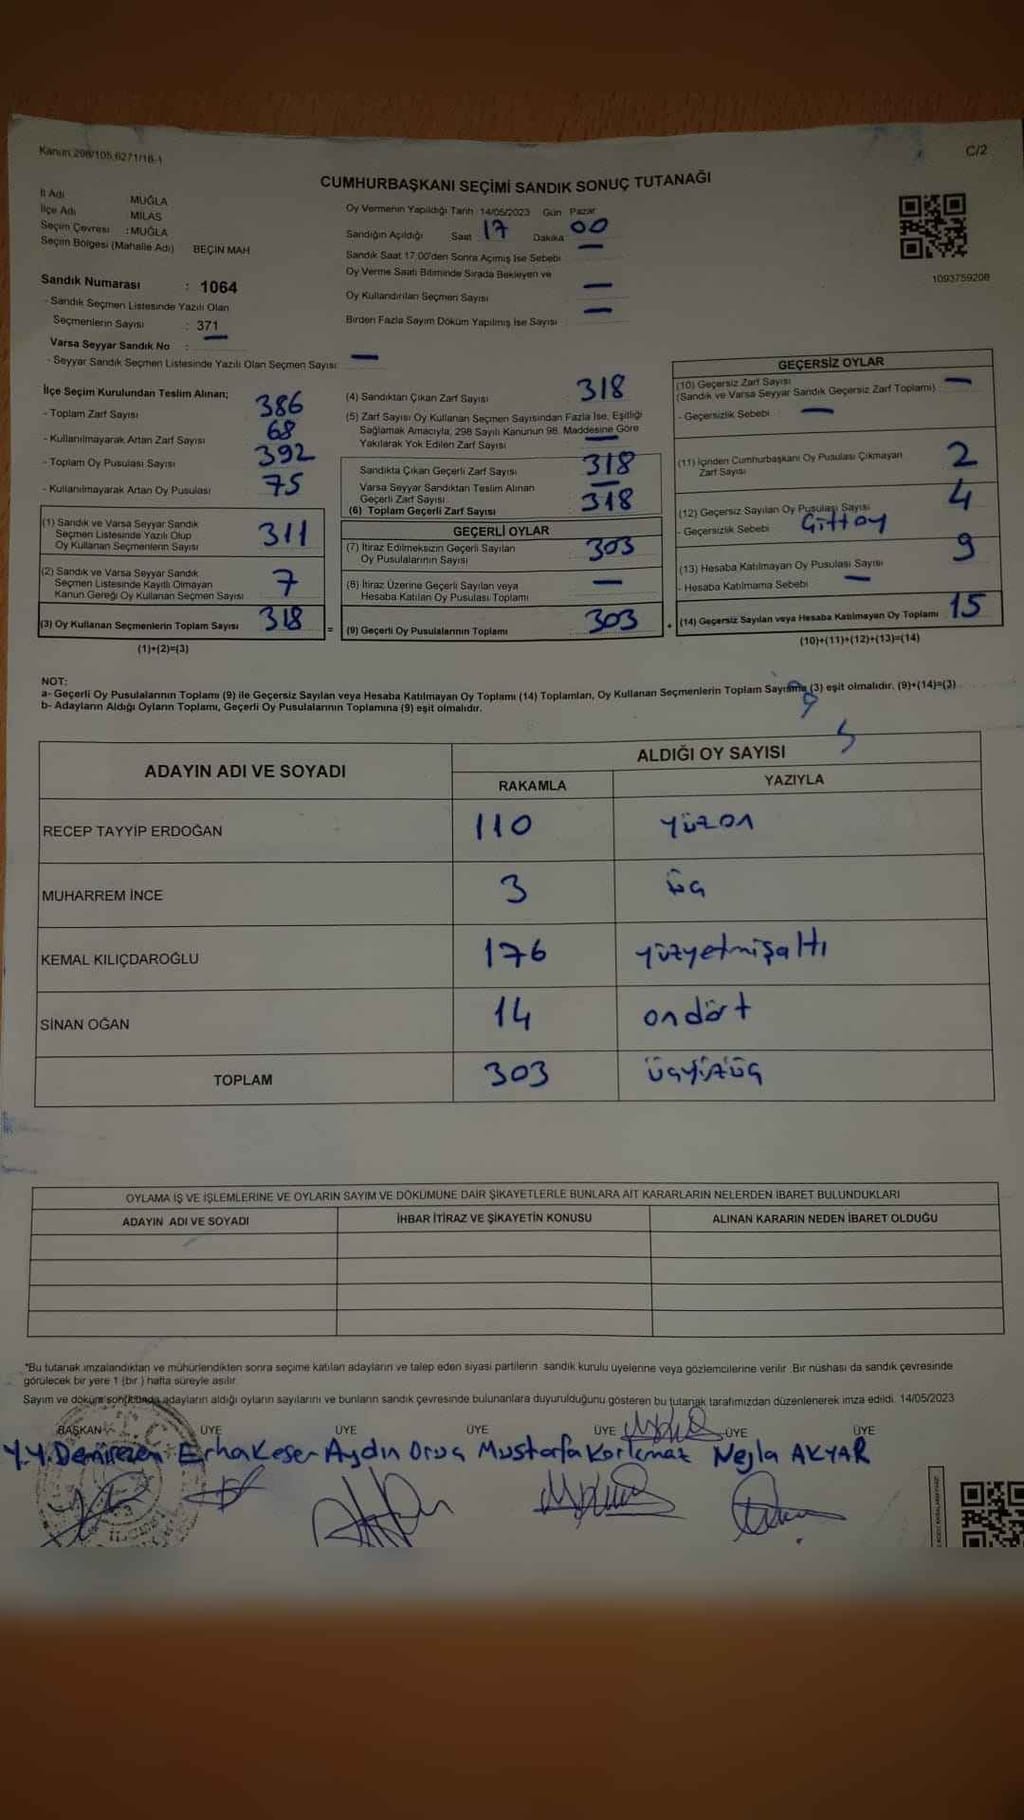 Kanun 298/105,6271/18-1
C/2
CUMHURBAŞKANI SEÇİMİ SANDIK SONUÇ TUTANAĞI
İl Adı : MUĞLA
İlçe Adı : MİLAS
Seçim Çevresi : MUĞLA
Seçim Bölgesi (Mahalle Adı) BEÇİN MAH
Sandık Numarası : 1064
- Sandık Seçmen Listesinde Yazılı Olan
Seçmenlerin Sayısı : 371
Varsa Seyyar Sandık No : —
- Seyyar Sandık Seçmen Listesinde Yazılı Olan Seçmen Sayısı: —
Oy Vermenin Yapıldığı Tarih 14/05/2023 Gün Pazar
Sandığın Açıldığı Saat 17 Dakika 00
Sandık Saat 17.00'den Sonra Açımış İse Sebebi —
Oy Verme Saati Bitiminde Sırada Bekleyen ve
Oy Kullandırılan Seçmen Sayısı —
Birden Fazla Sayım Döküm Yapılmış İse Sayısı —
1093759208
İlçe Seçim Kurulundan Teslim Alınan;
- Toplam Zarf Sayısı 386
- Kullanılmayarak Artan Zarf Sayısı 68
- Toplam Oy Pusulası Sayısı 392
- Kullanılmayarak Artan Oy Pusulası 75
(1) Sandık ve Varsa Seyyar Sandık
Seçmen Listesinde Yazılı Olup
Oy Kullanan Seçmenlerin Sayısı 311
(2) Sandık ve Varsa Seyyar Sandık
Seçmen Listesinde Kayıtlı Olmayan
Kanun Gereği Oy Kullanan Seçmen Sayısı 7
(3) Oy Kullanan Seçmenlerin Toplam Sayısı 318
(1)+(2)=(3)
(4) Sandıktan Çıkan Zarf Sayısı 318
(5) Zarf Sayısı Oy Kullanan Seçmen Sayısından Fazla İse, Eşitliği
Sağlamak Amacıyla, 298 Sayılı Kanunun 98. Maddesine Göre
Yakılarak Yok Edilen Zarf Sayısı —
Sandıkta Çıkan Geçerli Zarf Sayısı 318
Varsa Seyyar Sandıktan Teslim Alınan
Geçerli Zarf Sayısı —
(6) Toplam Geçerli Zarf Sayısı 318
GEÇERLİ OYLAR
(7) İtiraz Edilmeksizin Geçerli Sayılan
Oy Pusulalarının Sayısı 303
(8) İtiraz Üzerine Geçerli Sayılan veya
Hesaba Katılan Oy Pusulası Toplamı —
= (9) Geçerli Oy Pusulalarının Toplamı 303
GEÇERSİZ OYLAR
(10) Geçersiz Zarf Sayısı
(Sandık ve Varsa Seyyar Sandık Geçersiz Zarf Toplamı) —
- Geçersizlik Sebebi —
(11) İçinden Cumhurbaşkanı Oy Pusulası Çıkmayan
Zarf Sayısı 2
(12) Geçersiz Sayılan Oy Pusulası Sayısı 4
- Geçersizlik Sebebi
(13) Hesaba Katılmayan Oy Pusulası Sayısı 9
- Hesaba Katılmama Sebebi —
+ (14) Geçersiz Sayılan veya Hesaba Katılmayan Oy Toplamı 15
(10)+(11)+(12)+(13)=(14)
NOT:
a- Geçerli Oy Pusulalarının Toplamı (9) ile Geçersiz Sayılan veya Hesaba Katılmayan Oy Toplamı (14) Toplamları, Oy Kullanan Seçmenlerin Toplam Sayısına (3) eşit olmalıdır. (9)+(14)=(3)
b- Adayların Aldığı Oyların Toplamı, Geçerli Oy Pusulalarının Toplamına (9) eşit olmalıdır.
ADAYIN ADI VE SOYADI
ALDIĞI OY SAYISI
RAKAMLA YAZIYLA
RECEP TAYYİP ERDOĞAN 110 yüzon
MUHARREM İNCE 3 üç
KEMAL KILIÇDAROĞLU 176 yüzyetmişaltı
SİNAN OĞAN 14 ondört
TOPLAM 303 üçyüzüç
OYLAMA İŞ VE İŞLEMLERİNE VE OYLARIN SAYIM VE DÖKÜMÜNE DAİR ŞİKAYETLERLE BUNLARA AİT KARARLARIN NELERDEN İBARET BULUNDUKLARI
ADAYIN ADI VE SOYADI İHBAR İTİRAZ VE ŞİKAYETİN KONUSU ALINAN KARARIN NEDEN İBARET OLDUĞU
*Bu tutanak imzalandıktan ve mühürlendikten sonra seçime katılan adayların ve talep eden siyasi partilerin sandık kurulu üyelerine veya gözlemcilerine verilir. Bir nüshası da sandık çevresinde
görülecek bir yere 1 (bir ) hafta süreyle asılır.
Sayım ve döküm sonucunda adayların aldığı oyların sayılarını ve bunların sandık çevresinde bulunanlara duyurulduğunu gösteren bu tutanak tarafımızdan düzenlenerek imza edildi. 14/05/2023
BAŞKAN ÜYE ÜYE ÜYE ÜYE ÜYE ÜYE
Y.Y.Demirezen Erhan Keser Aydın Oruç Mustafa Korkmaz Nejla AKYAR